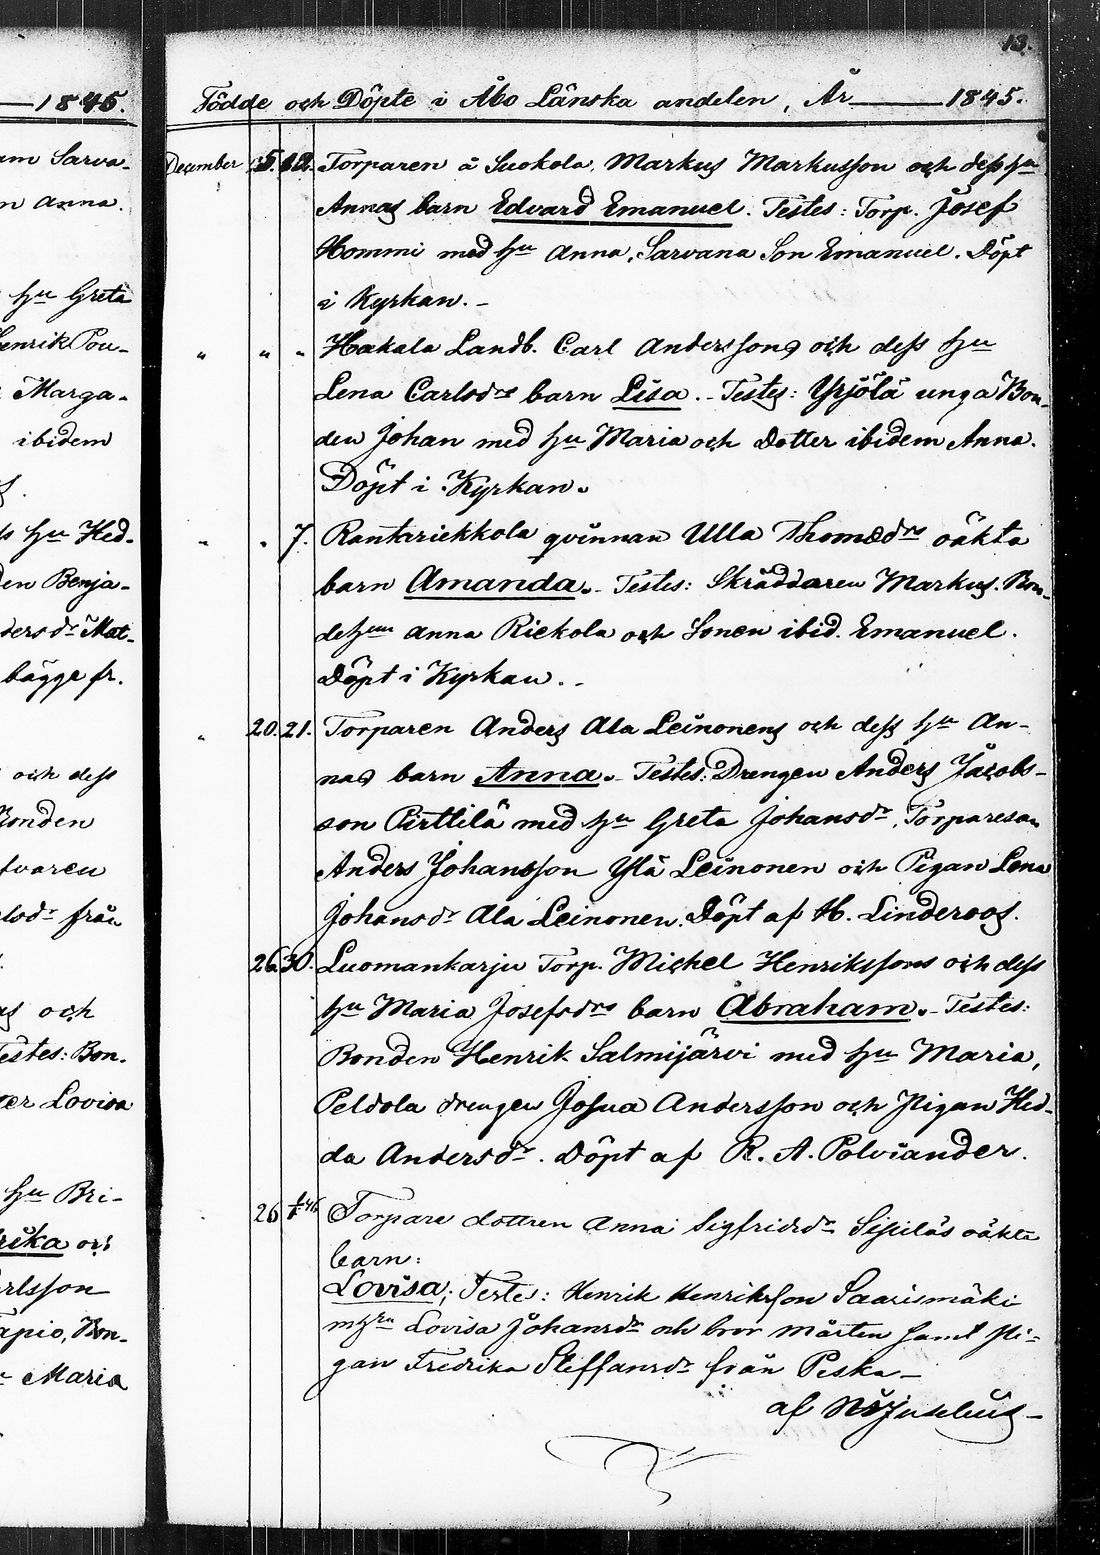 1845.
am Sarva-
n Anna.
hu Greta
Henrik Pou-
Marga-
ibidem
s hu Hed-
den Benja-
dersdr Mat-
bägge fr.
och dess
Bonden
tvaren
från
och
Testes: Bon-
ter Lovisa
hu Bri-
rika och
rlsson
Tapio, Bon-
Maria
13.
Födde och Döpte i Åbo Länska andelen, År 1845.
December 5. 12. Torparen å Suokola, Markus Markusson och dess hu
Annas barn Edvard Emanuel. Testes: Torp. Josef
Hommi med hu Anna, Sarvana Son Emanuel. Döpt
i Kyrkan. -
" " " Hakala Landb. Carl Anderssons och dess hu
Lena Carlsdrs barn Lisa. - Testes: Yrjölä unga Bon-
den Johan med hu Maria och Dotter ibidem Anna.
Döpt i Kyrkan.
" " 7. Rantariekkola qvinnan Ulla Thomædrs oäkta
barn Amanda. - Testes: Skräddaren Markus. Bon-
dehun Anna Riekola och Sonen ibid. Emanuel.
Döpt i Kyrkan. -
" 20. 21. Torparen Anders Ala Leinonens och dess hu An-
nas barn Anna. - Testes: Drengen Anders Jacobs-
son Pirttilä med hu Greta Johansdr, Torpareson
Anders Johansson Ylä Leinonen och Pigan Lena
Johansdr Ala Leinonen. Döpt af H. Linderoos.
26. 30. Luomankarju Torp. Michel Henrikssons och dess
hu Maria Josefsdrs barn Abraham. - Testes:
Bonden Henrik Salmijärvi med hu Maria,
Peldola drengen Josua Andersson och Pigan Hed-
da Andersdr. Döpt af R. A. Polviander.
26 Torpare dottren Anna Sigfridsdr Sipiläs oäkta
barn:
Lovisa; Teste: Henrik Henriksson Saarismäki
m hru Lovisa Johansdr och bror Mårten samt Pi-
gan Fredrika Steffansdr från Peska -
af